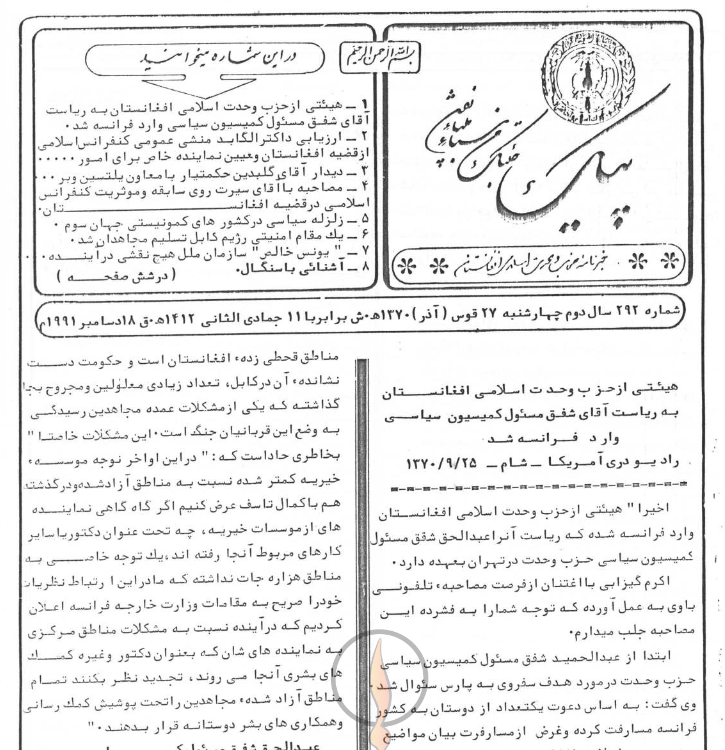 بسم الله الرحمن الرحیم
در این شماره میخوانید
۱ ــ هیئتی ازحزب وحدت اسلامی افغانستان به ریاست
آقای شفق مسئول کمیسیون سیاسی وارد فرانسه شد۰
۲ ــ ارزیابی داکترالگابد منشی عمومی کنفرانس اسلامی
ازقضیه افغانستان وعیین نماینده خاص برای امور ۰۰۰۰۰
۳ ــ دیدار آقای گلبدین حکمتیار بامعاون یلتسین وبر ۰۰۰
۴ ــ مصاحبه باآقای سیرت روی سابقه وموثریت کنفرانس
اسلامی درقضیه افغانســـــــــتان۰
۵ ــ زلزله سیاسی درکشور های کمونیستی جهان سوم ۰
۶ ــ یك مقام امنیتی رژیم کابل تسلیم مجاهدان شد۰
۷ ــ " یونس خالص" سازمان ملل هیچ نقشی درآینــــده۰۰۰۰
۸ ــ آشنائی باسنگال۰ ( درشش صفحـــــه )
پیک
خبرنامه حزب وحدت اسلامی افغانستان
شماره ۲۹۲ سال دوم چهارشنبه ۲۷ قوس (آذر) ۱۳۷۰ه‍۰ش برابربا ۱۱ جمادی الثانی ۱۴۱۲ه‍۰ق ۱۸دسامبر ۱۹۹۱م
هیئتی ازحـزب وحـدت اسـلامی افغانســــتان
به ریاست آقای شفق مسئول کمیسیون سیاســی
وارد فــرانسه شــد
رادیـو دری آمـریکـا ــ شـام ــ ۱۳۷۰/۹/۲۵
اخیرا " هیئتی ازحزب وحدت اسلامی افغانســـتان
وارد فرانسه شده که ریاست آنراعبدالحق شفق مسئول
کمیسیون سیاسی حـزب وحدت درتهران بعهده دارد۰
اکرم گیزابی بااغتنان ازفرصت مصاحبهء تلفونــی
باوی به عمل آورده که توجه شمارا به فشرده ایــن
مصاحبه جلب میدارم۰
ابتدا از عبدالحمید شفق مسئول کمیسیون سیاسی
حـزب وحـدت درمورد هدف سفروی به پارس سئوال شد۰
وی گفت: به اساس دعوت یکتعداد از دوستان به کشور
فرانسه مسارفت کرده وغرض ازمسارفرت بیان مواضیع
مناطق قحطی زدهء افغانستان است و حکومت دســت
نشاندهء آن درکابل، تعداد زیادی معلولین ومجروح بجا
گذاشتـه کـه یکی ازمشکلات عمده مجاهدین رسیدگــی
بـه وضع این قربانیان جنگ است۰ این مشکلات خاصتا "
بخاطری حاداست کـه : " دراین اواخر توجه موسســهء
خیریـه کمتر شده نسبت به مناطق آزادشده‌ودرگذشته
هـم باکمال تاسف عرض کنیم اگر گاه گاهی نماینــده
های ازموسسات خیریـه ، چه تحت عنوان دکتوریاسایر
کارهای مربوط آنجا رفته اند، یك توجه خاصـــی بـه
مناطق هزاره جات نداشته کـه مادراین ارتباط نظریات
خودرا صریح به مقامات وزارت خارجـه فرانسه اعـلان
کـردیم کـه درآینده نسبت بـه مشکلات مناطق مـرکزی
به نماینده های شان کـه بعنوان دکتور وغیره کمـــك
های بشری آنجا می روند، تجدید نظـر بکنند تمــام
مناطق آزاد شدهء مجاهدین راتحت پوشیش کمك رسانی
وهمکاری های بشر دوستانـه قرار بـدهنـد۰"